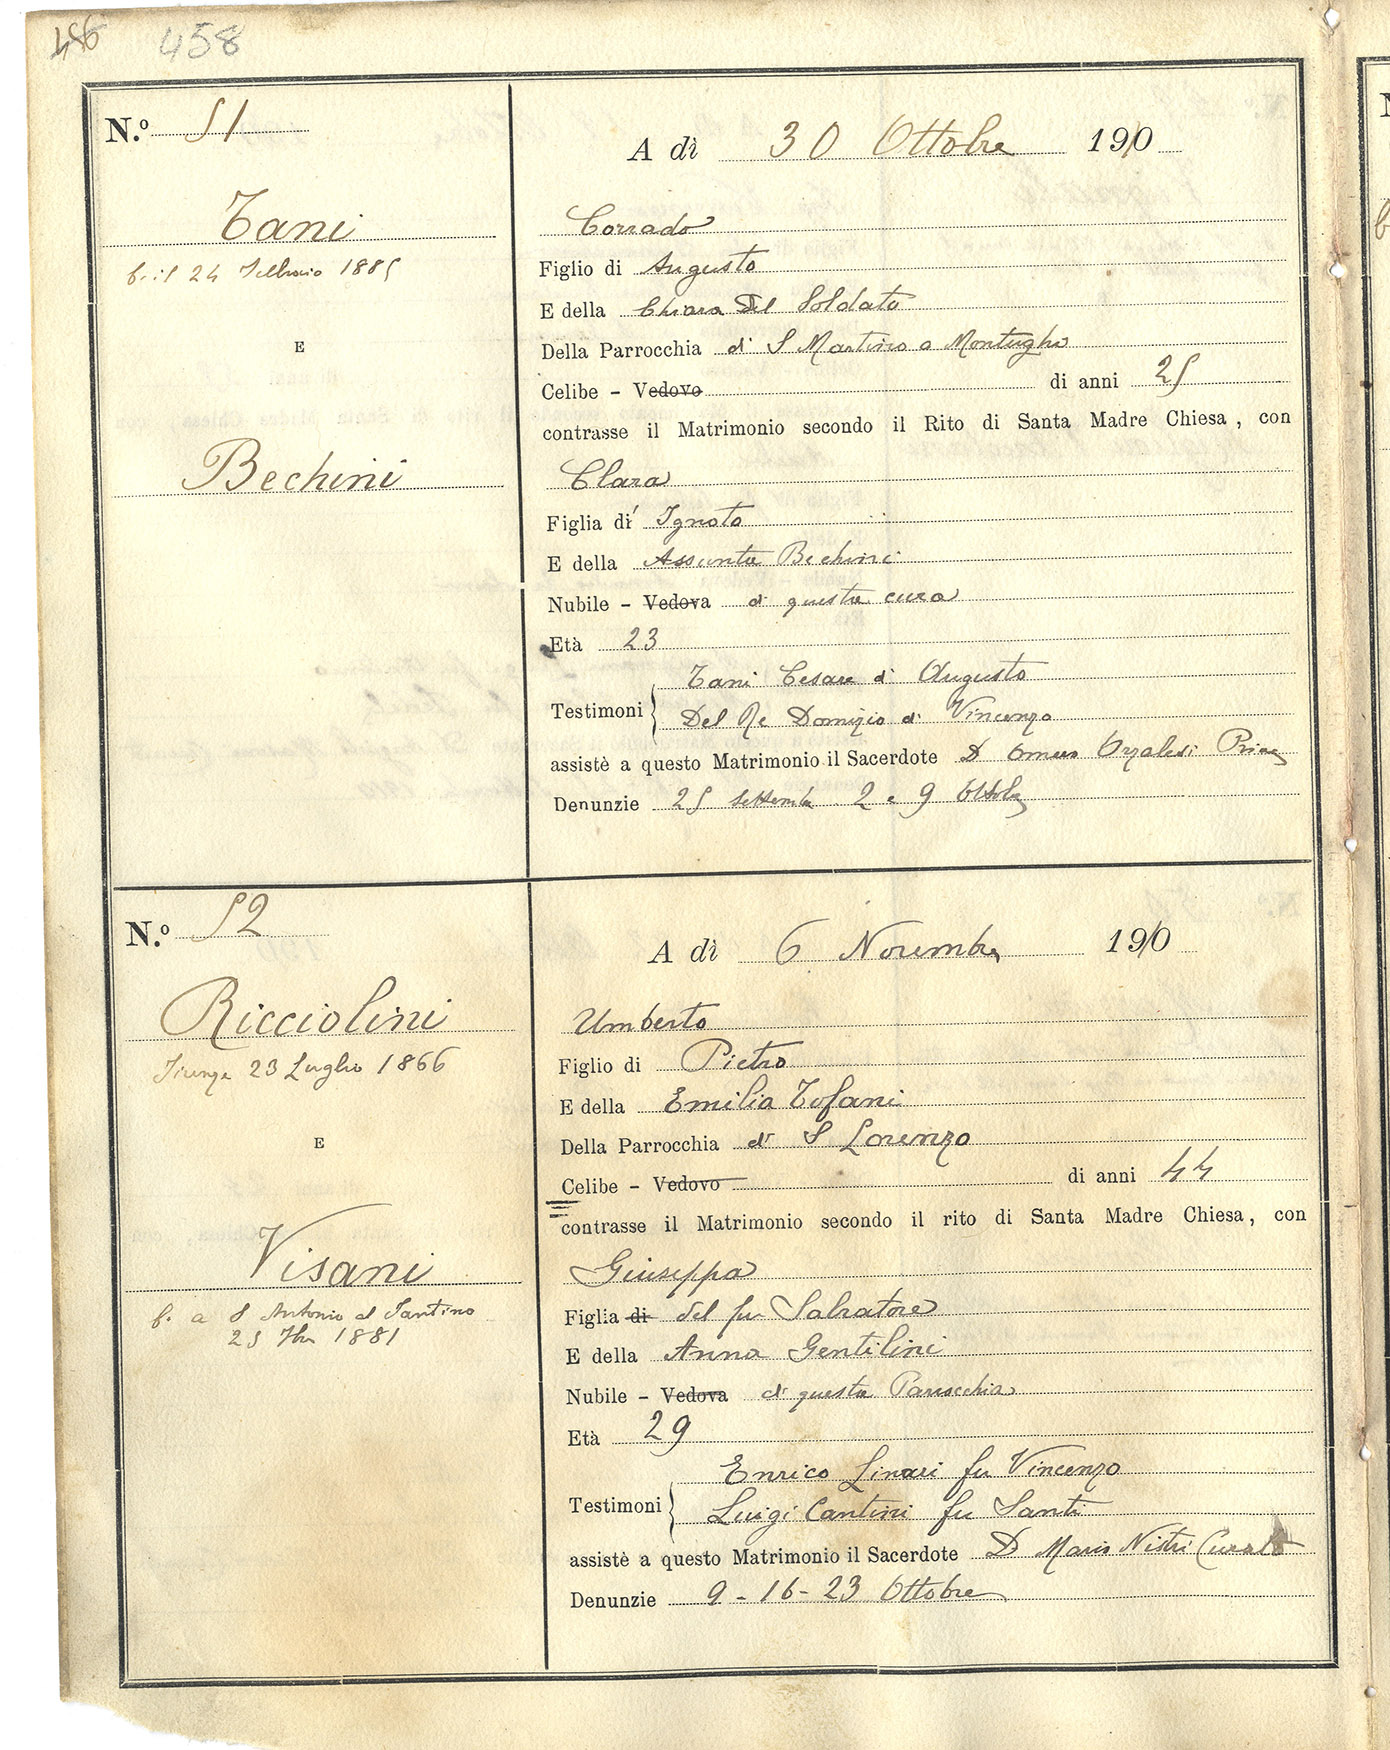 456 458
N.º 51
A dì 30 Ottobre 1910
Tani
b. il 24 Febbraio 1885
E
Bechini
Corrado
Figlio di Augusto
E della Chiara Del Soldato
Della Parrocchia di S Martino a Montughi
Celibe - Vedovo di anni 25
contrasse il Matrimonio secondo il Rito di Santa Madre Chiesa, con
Clara
Figlia di Ignoto
E della Assunta Bechini
Nubile - Vedova di questa cura
Età 23
Testimoni
Tani Cesare di Augusto
Del Re Domizio di Vincenzo
assistè a questo Matrimonio il Sacerdote D Omero Orzalesi
Denunzie 25 Settembre 2 e 9 Ottobre
N.º 52
A dì 6 Novembre 1910
Ricciolini
Firenze 23 Luglio 1866
E
Visani
b. a S Antonio al Santino
25 7bre 1881
Umberto
Figlio di Pietro
E della Emilia Tofani
Della Parrocchia di S Lorenzo
Celibe - Vedovo di anni 44
contrasse il Matrimonio secondo il rito di Santa Madre Chiesa, con
Giuseppa
Figlia di del fu Salvatore
E della Anna Gentilini
Nubile - Vedova di questa Parrocchia
Età 29
Testimoni
Enrico Linari fu Vincenzo
Luigi Cantini fu Santi
assistè a questo Matrimonio il Sacerdote D Mario Nistri Curato
Denunzie 9 - 16 - 23 Ottobre